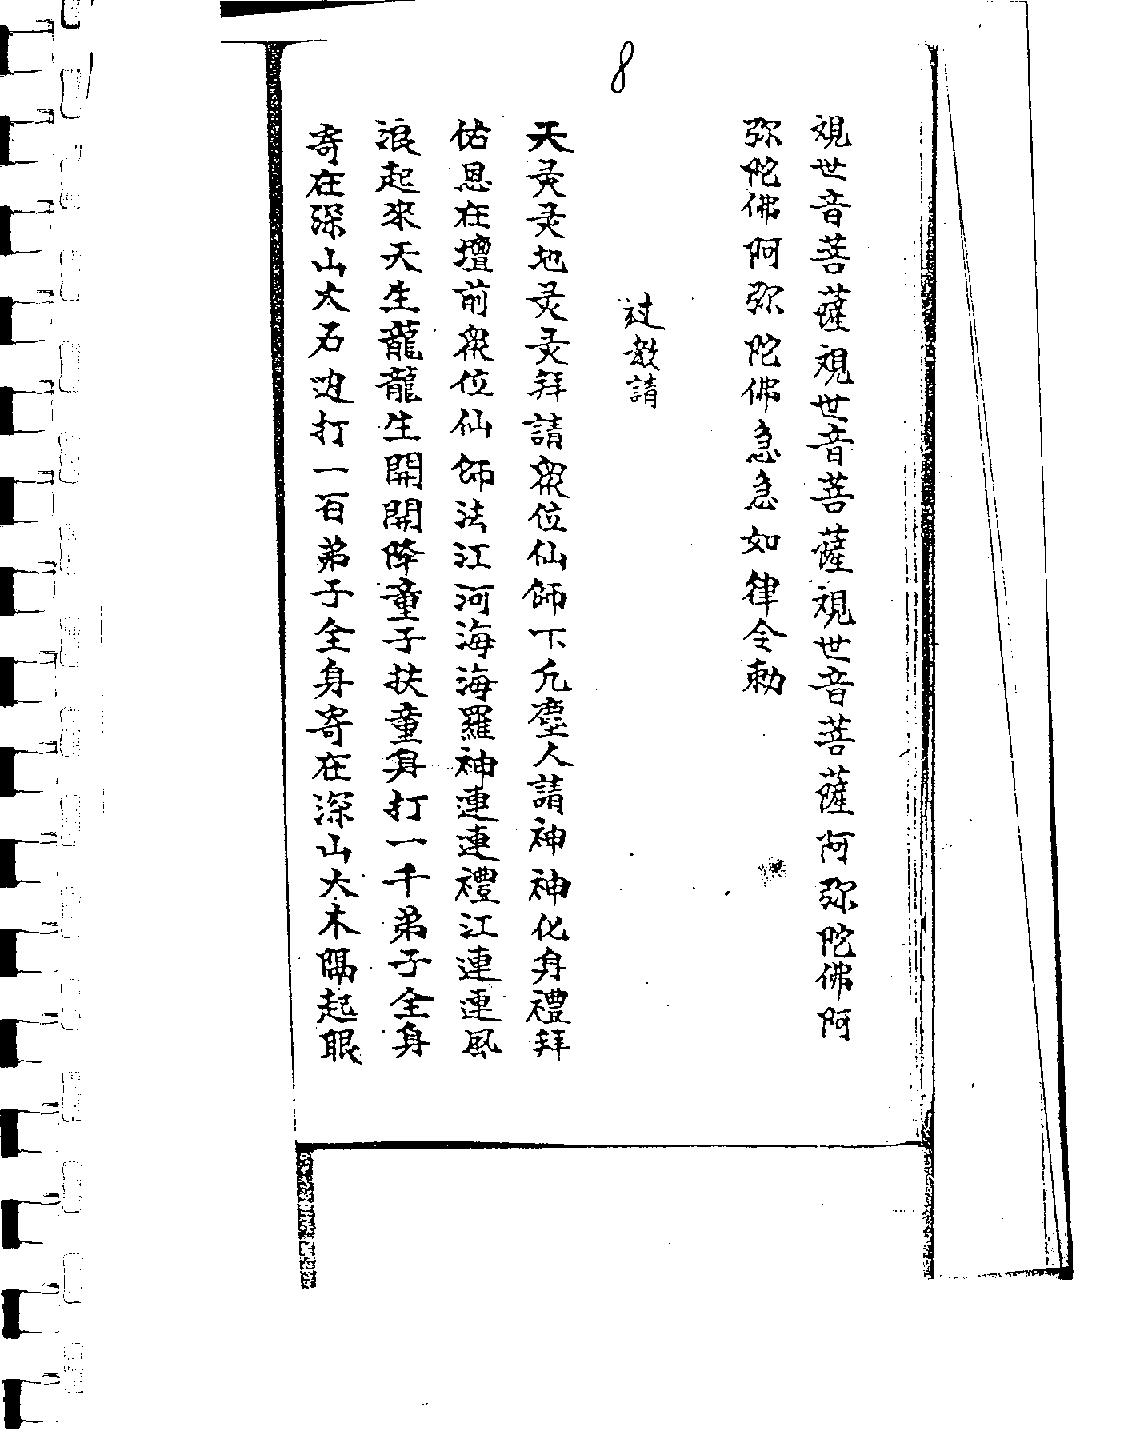 8
視世音菩薩視世音菩薩視世音菩薩視世音菩薩阿弥陀佛阿
弥陀佛阿弥陀佛急急如律令勅
过教請
天灵灵地灵灵拜請衆位仙師下凡塵人請神神化身禮拜
佑恩在壇前衆位仙師法江河海海羅神連連禮江連連風
浪起來天生龍龍生開開降童子扶童身打一千弟子全身
寄在深山大石边打一百弟子全身寄在深山大木隔起眼